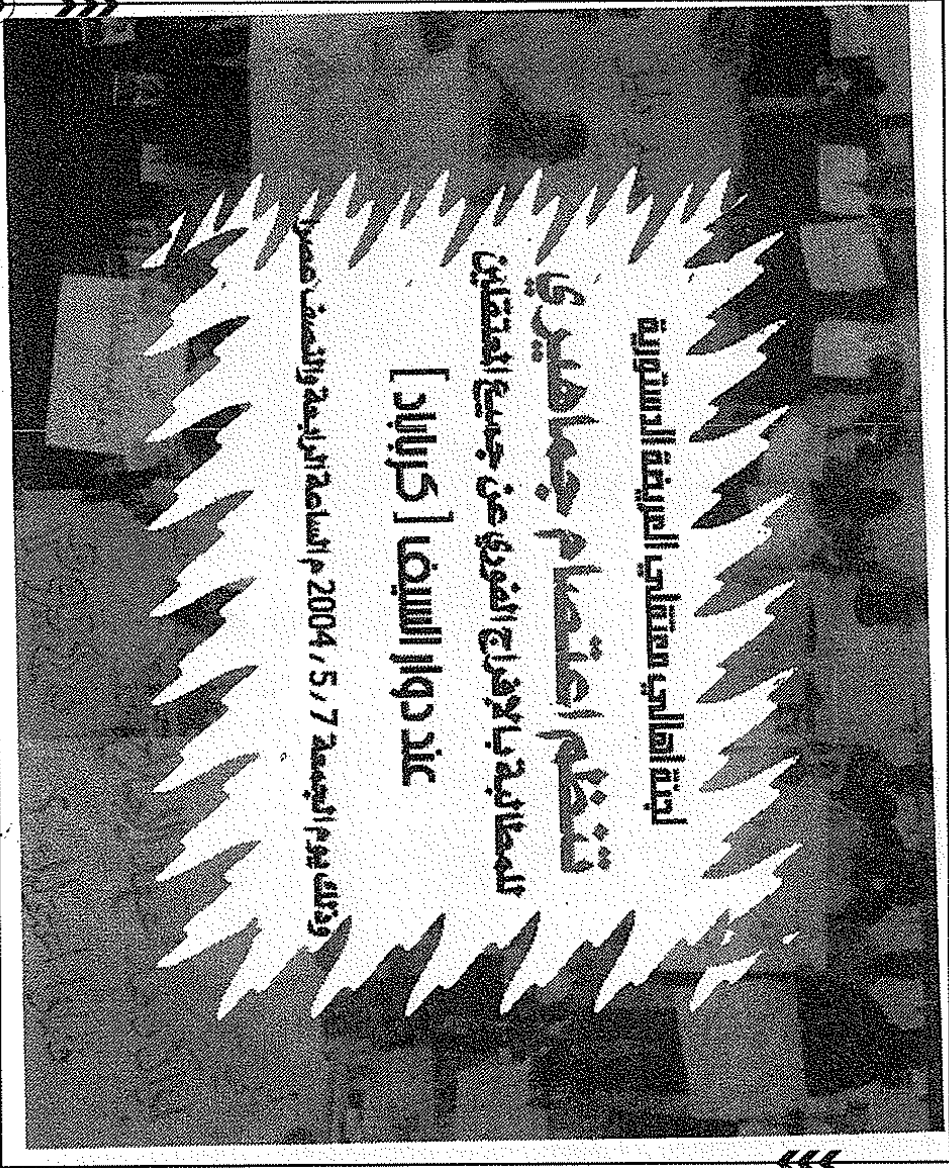 لجنة اهالي معتقلي العريضة الدستورية
تنظم اعتصام جماهيري
للمطالبة بالافراج الفوري عن جميع المعتقلين
عند دوار السيف [ كرباباد ]
وذلك يوم الجمعة 7 / 5 / 2004 م الساعة الرابعة والنصف عصرا